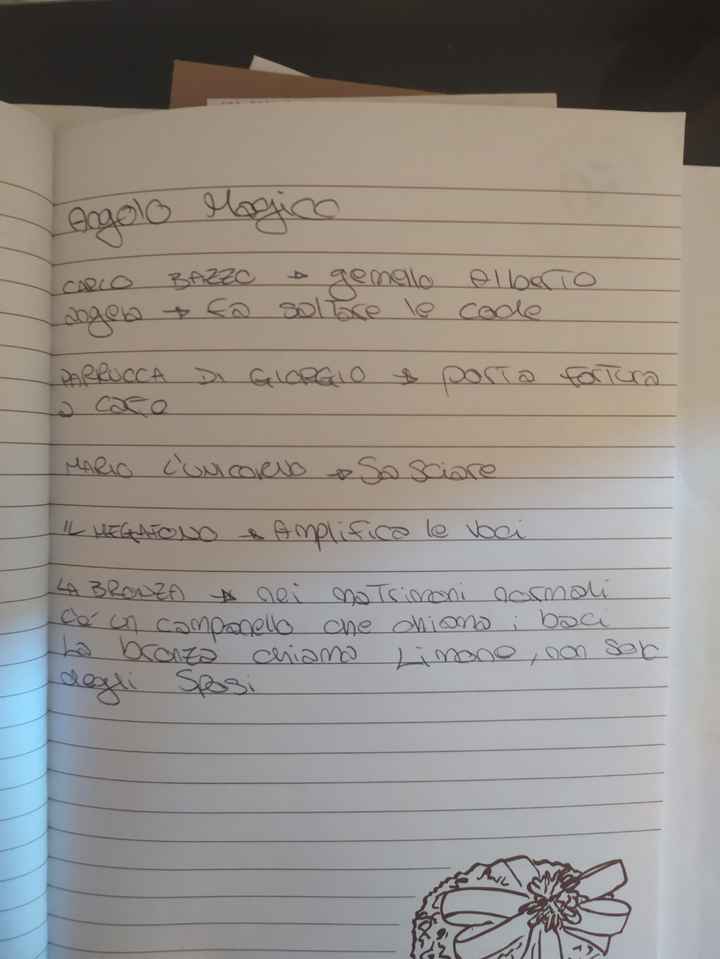 Angolo Magico
CARLO BAZZO → gemello Alberto
angela → Fa saltare le code
PARRUCCA DI GIORGIO → porta fortuna
a caso
MARIO L'UNICORNO → Sa Sciare
IL MEGAFONO → Amplifica le voci
LA BRONZA → nei matrimoni normali
c'é un campanello che chiama i baci
La bronza chiama Limone, non solo
degli Sposi